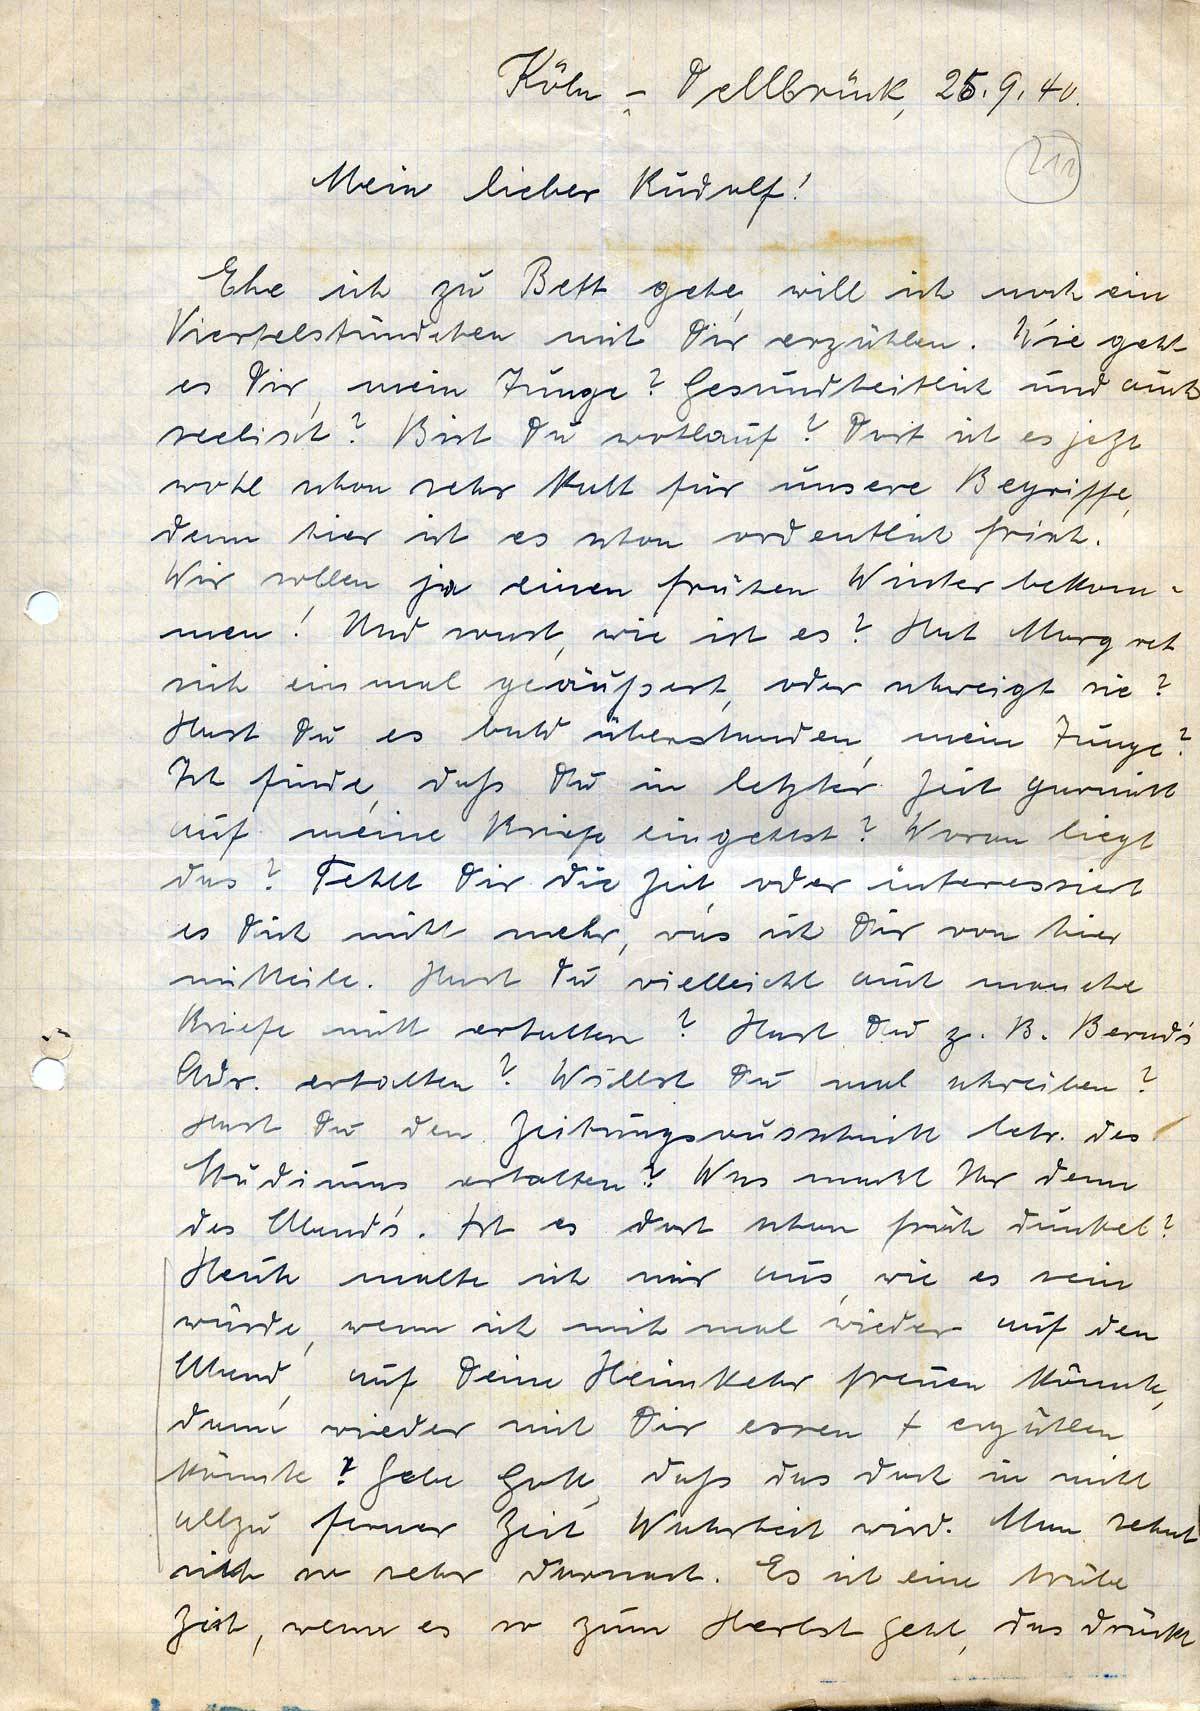 Köln - Dellbrück, 25.9.40.
211
Mein lieber Rudolf!
Ehe ich zu Bett gehe, will ich noch ein
Viertelstündchen mit Dir erzählen. Wie geht
es Dir, mein Junge? Gesundheitlich und auch
seelisch? Bist Du wohlauf? Dort ist es jetzt
wohl schon sehr kalt für unsere Begriffe,
denn hier ist es schon ordentlich frisch.
Wir sollen ja einen frühen Winter bekom-
men! Und sonst, wie ist es? Hat Margret
sich einmal geäußert, oder schweigt sie?
Hast Du es bald überstanden, mein Junge?
Ich finde, daß Du in letzter Zeit garnicht
auf meine Briefe eingehst? Woran liegt
das? Fehlt Dir die Zeit, oder interessiert
es Dich nicht mehr, was ich Dir von hier
mitteile. Hast Du vielleicht auch manche
Briefe nicht erhalten? Hast Du z. B. Bernd's
Adr. erhalten? Willst Du mal schreiben?
Hast Du den Zeitungsausschnitt betr. des
Studiums erhalten? Was macht Ihr denn
des Abend's. Ist es dort schon früh dunkel?
Heute malte ich mir aus, wie es sein
würde, wenn ich mich mal wieder auf den
Abend, auf Deine Heimkehr freuen könnte,
dann wieder mit Dir essen + erzählen
könnte? Gebe Gott, daß das doch in nicht
allzu ferner Zeit Wahrheit wird. Man sehnt
sich so sehr darnach. Es ist eine trübe
Zeit, wenn es so zum Herbst geht, das drückt